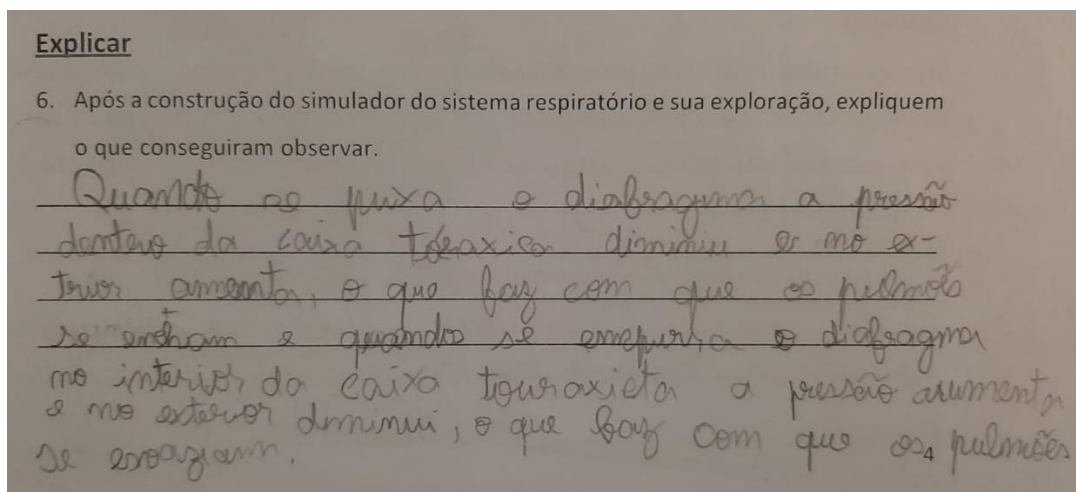 Explicar
6. Após a construção do simulador do sistema respiratório e sua exploração, expliquem
o que conseguiram observar.
Quando se puxa o diafragma a pressão
dentero da caixa toraxica diminiu e no ex-
trior amenta, o que faz com que os pulmões
se encham e quando se empurra o diafragma
no interior da caixa touraxieta a pressão arumenta
e no exterior dminui, o que faz com que os pulmões
se esvaziam.
4